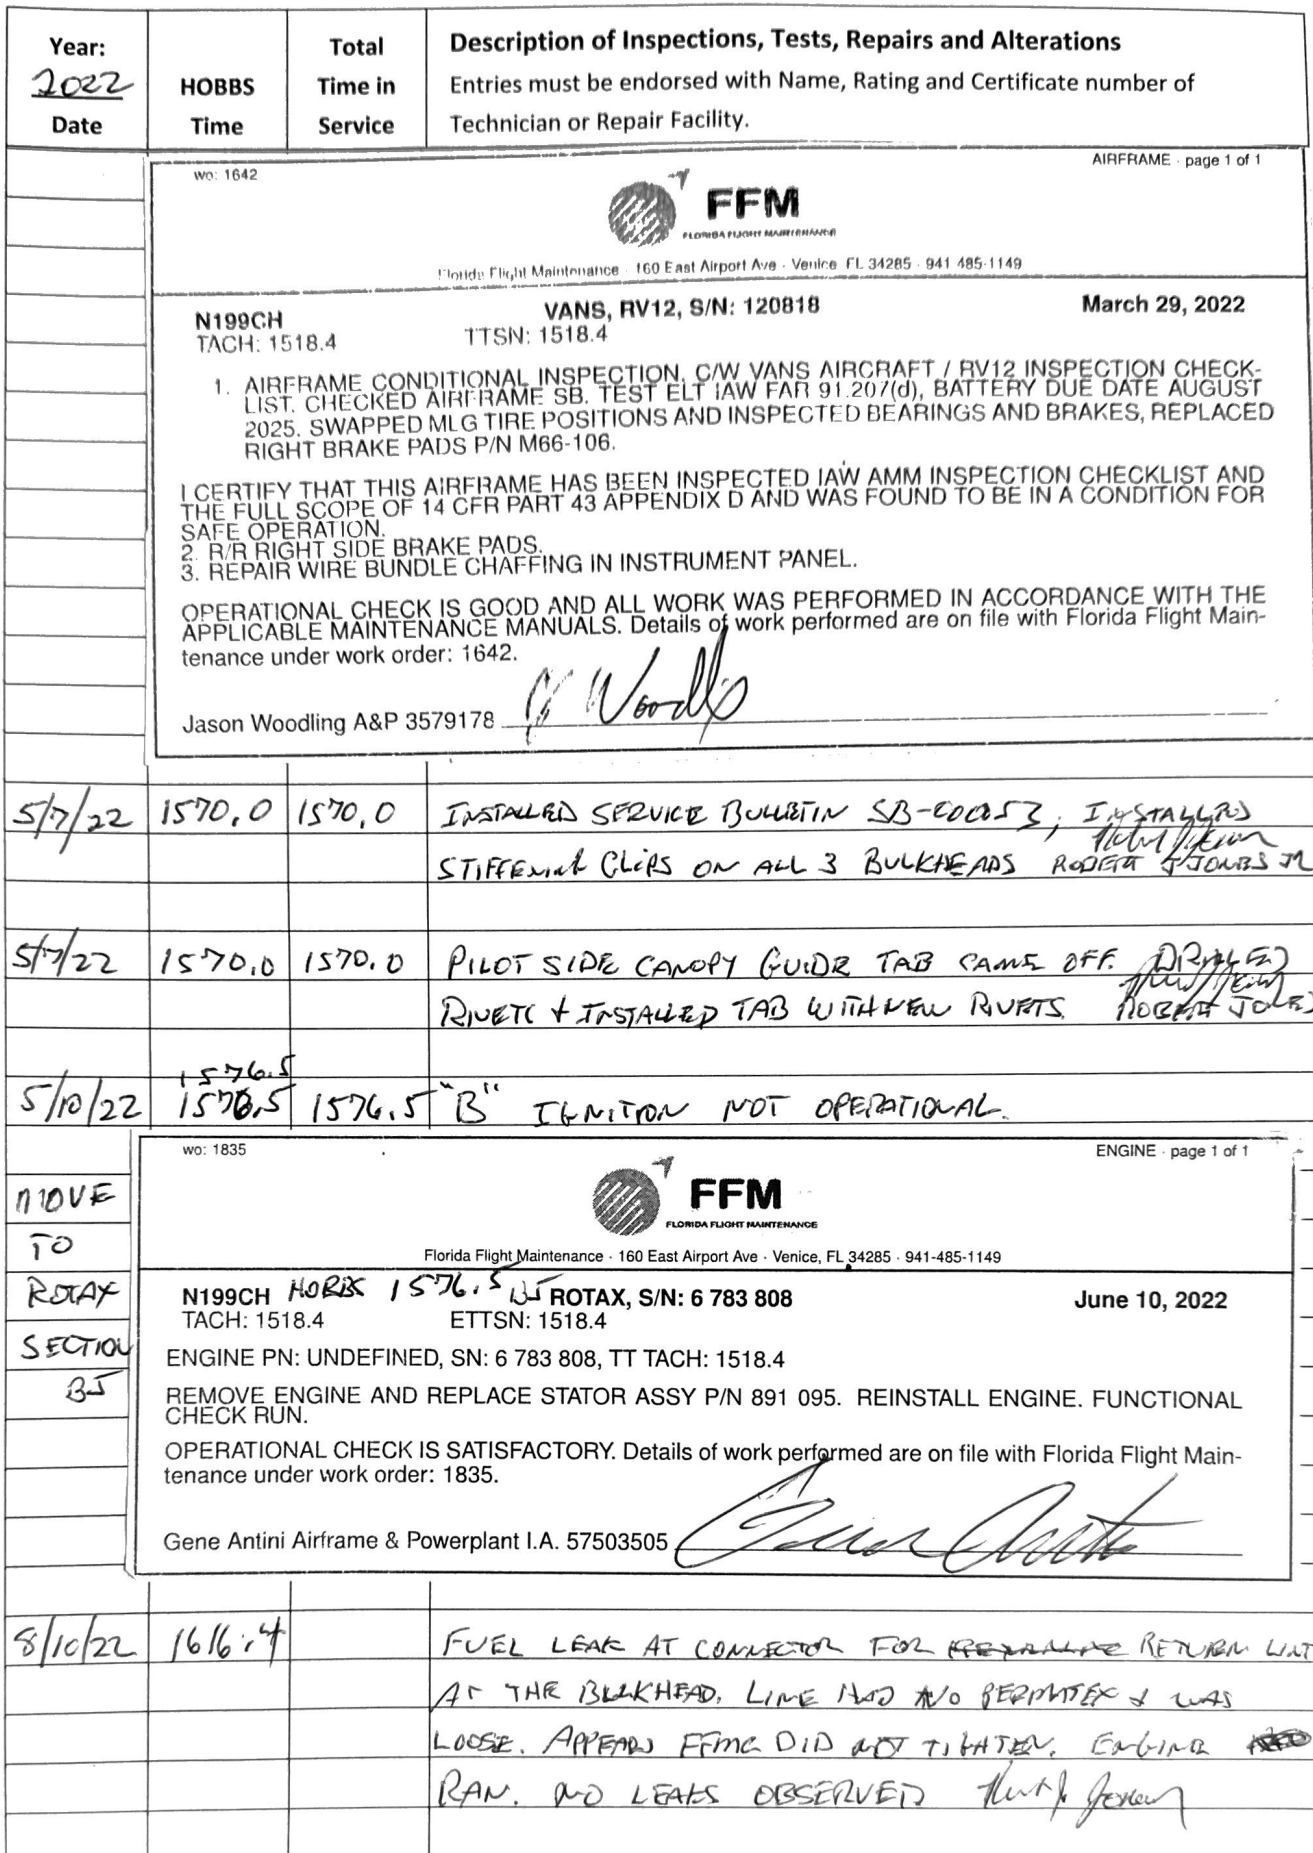 Year:
2022
Date
HOBBS
Time
Total
Time in
Service
Description of Inspections, Tests, Repairs and Alterations
Entries must be endorsed with Name, Rating and Certificate number of
Technician or Repair Facility.
wo: 1642
AIRFRAME - page 1 of 1
FFM
FLORIDA FLIGHT MAINTENANCE
Florida Flight Maintenance · 160 East Airport Ave · Venice FL 34285 · 941 485-1149
N199CH
VANS, RV12, S/N: 120818
March 29, 2022
TACH: 1518.4
TTSN: 1518.4
1. AIRFRAME CONDITIONAL INSPECTION, C/W VANS AIRCRAFT / RV12 INSPECTION CHECK-
LIST. CHECKED AIRFRAME SB. TEST ELT IAW FAR 91.207(d), BATTERY DUE DATE AUGUST
2025. SWAPPED MLG TIRE POSITIONS AND INSPECTED BEARINGS AND BRAKES, REPLACED
RIGHT BRAKE PADS P/N M66-106.
I CERTIFY THAT THIS AIRFRAME HAS BEEN INSPECTED IAW AMM INSPECTION CHECKLIST AND
THE FULL SCOPE OF 14 CFR PART 43 APPENDIX D AND WAS FOUND TO BE IN A CONDITION FOR
SAFE OPERATION.
2. R/R RIGHT SIDE BRAKE PADS.
3. REPAIR WIRE BUNDLE CHAFFING IN INSTRUMENT PANEL.
OPERATIONAL CHECK IS GOOD AND ALL WORK WAS PERFORMED IN ACCORDANCE WITH THE
APPLICABLE MAINTENANCE MANUALS. Details of work performed are on file with Florida Flight Main-
tenance under work order: 1642.
Jason Woodling A&P 3579178
5/7/22 1570.0 1570.0 INSTALLED SERVICE BULLETIN SB-00053, INSTALLED
STIFFENER CLIPS ON ALL 3 BULKHEADS ROBERT J JONES JR
5/7/22 1570.0 1570.0 PILOT SIDE CANOPY GUIDE TAB CAME OFF. DRILLED
RIVETS + INSTALLED TAB WITH NEW RIVETS. ROBERT JONES
1576.5
5/10/22 1576.5 1576.5 "B" IGNITION NOT OPERATIONAL.
MOVE
TO
ROTAX
SECTION
BJ
wo: 1835
ENGINE - page 1 of 1
FFM
FLORIDA FLIGHT MAINTENANCE
Florida Flight Maintenance · 160 East Airport Ave · Venice, FL 34285 · 941-485-1149
N199CH HOBBS 1576.5 BJ ROTAX, S/N: 6 783 808
June 10, 2022
TACH: 1518.4
ETTSN: 1518.4
ENGINE PN: UNDEFINED, SN: 6 783 808, TT TACH: 1518.4
REMOVE ENGINE AND REPLACE STATOR ASSY P/N 891 095. REINSTALL ENGINE. FUNCTIONAL
CHECK RUN.
OPERATIONAL CHECK IS SATISFACTORY. Details of work performed are on file with Florida Flight Main-
tenance under work order: 1835.
Gene Antini Airframe & Powerplant I.A. 57503505
8/10/22 1616.4 FUEL LEAK AT CONNECTOR FOR RETURN LINE
AT THE BULKHEAD. LINE HAD NO PERMATEX & WAS
LOOSE. APPEARS FFM DID NOT TIGHTEN. ENGINE
RAN. NO LEAKS OBSERVED